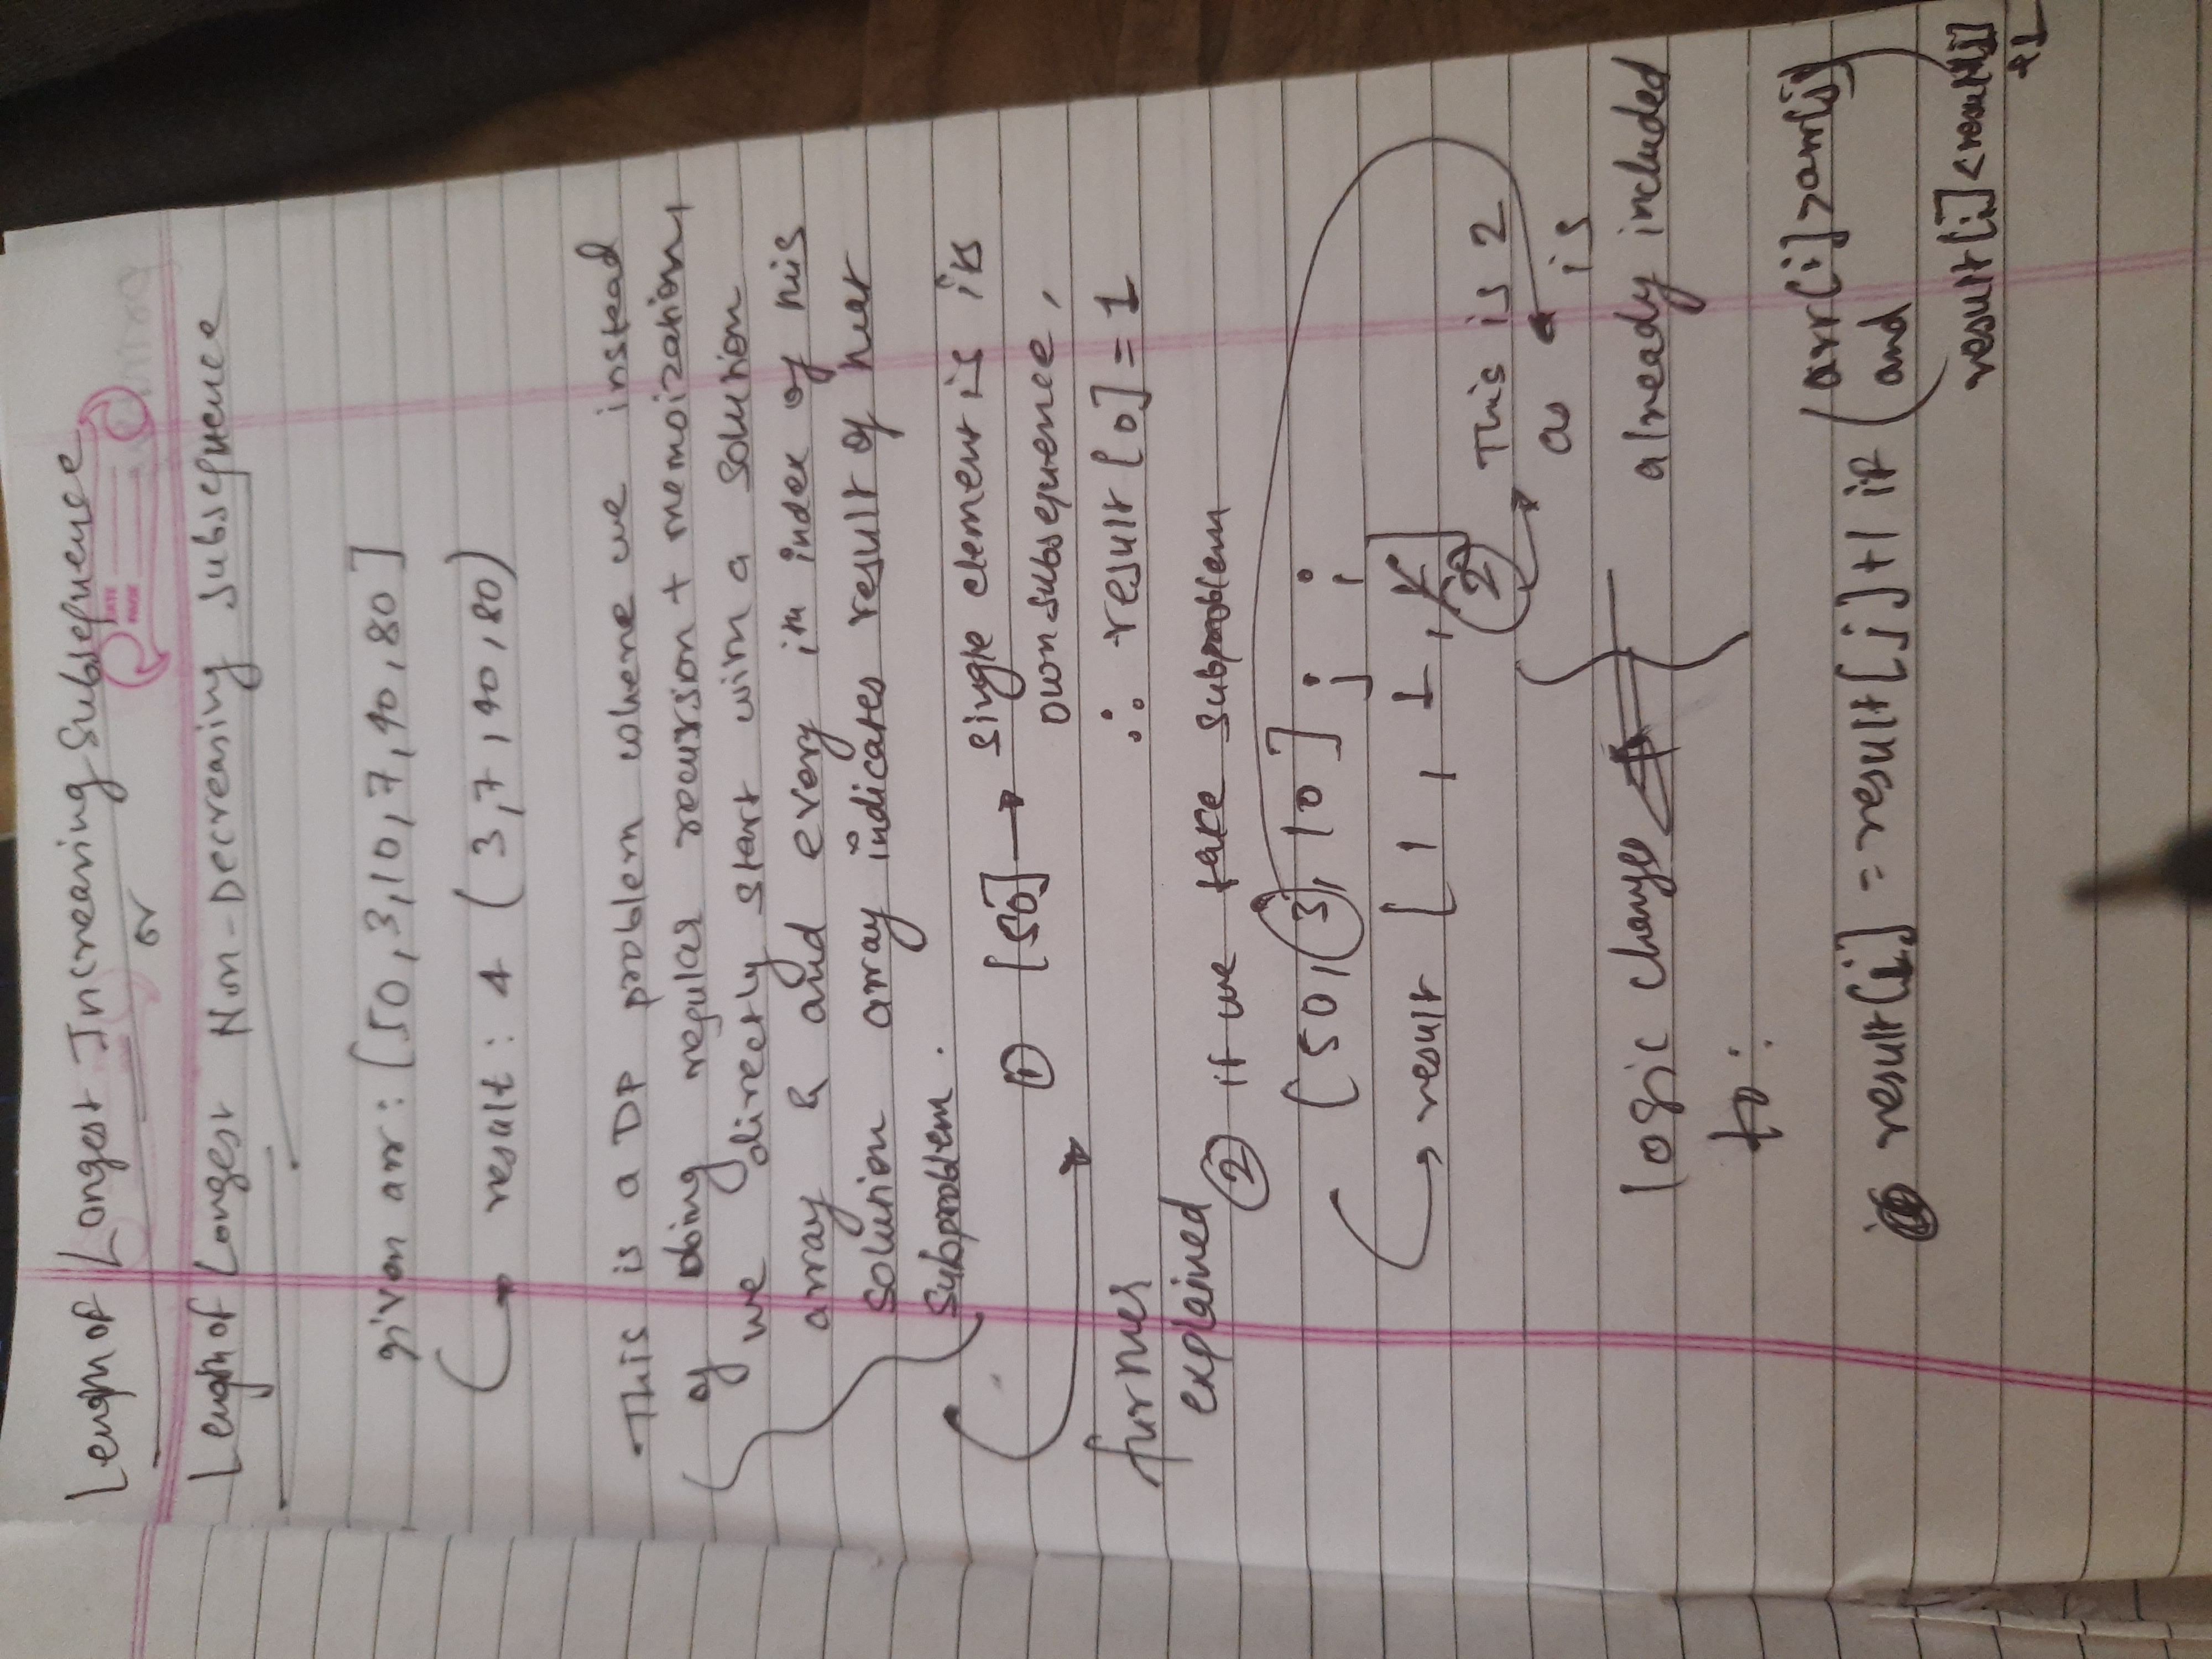 Length of Longest Increasing Subsequence
or
DATE
PAGE
Length of Longest Non-Decreasing Subsequence
given arr: [50, 3, 10, 7, 40, 80]
result: 4 (3, 7, 40, 80)
This is a DP problem where we instead
of doing regular recursion + memoization,
we directly start with a solution
array & and every ith index of this
solution array indicates result of that
subproblem.
① [50] → single element is its
own subsequence,
∴ result [0] = 1
further
explained
② if we take subproblem
[50, 3, 10]
j i
result [1, 1, 1]
2
This is 2
as is
already included
logic changes
to:
result[i] = result[j]+1 if (arr[i]>arr[j]
and
result[i]<result[j]
+1